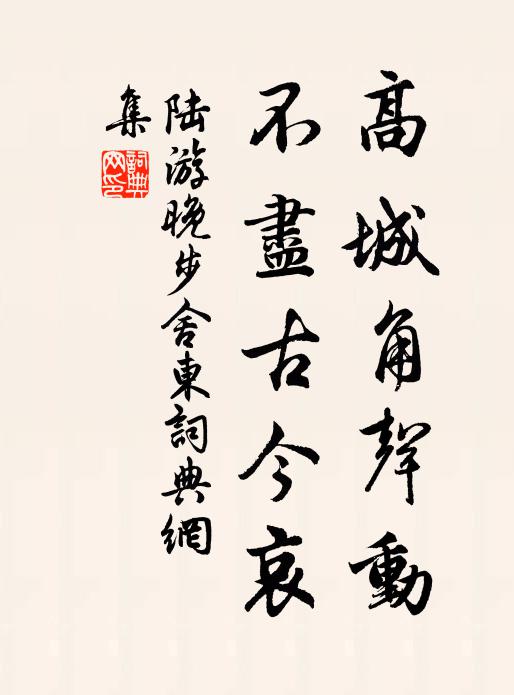 高城角聲動
不盡古今哀
陸游晚步舍東詞典網
集
詞典
网印